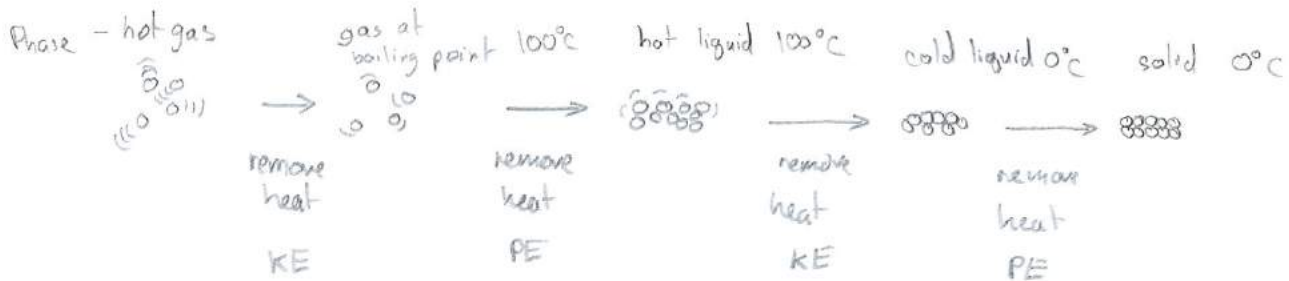 Phase - hot gas
gas at
boiling point 100°C
hot liquid 100°C
cold liquid 0°C
solid 0°C
remove
heat
KE
remove
heat
PE
remove
heat
KE
remove
heat
PE